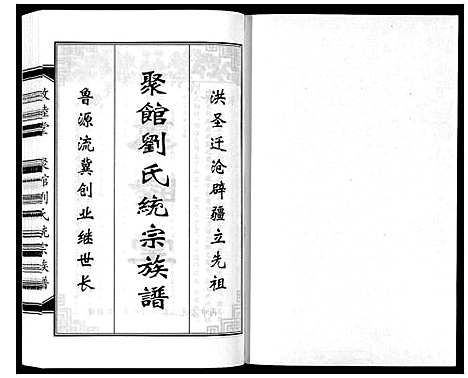 洪圣迁沧辟疆立先祖
聚館劉氏統宗族譜
鲁源流冀创业继世长
敦睦堂 聚馆刘氏统宗族谱